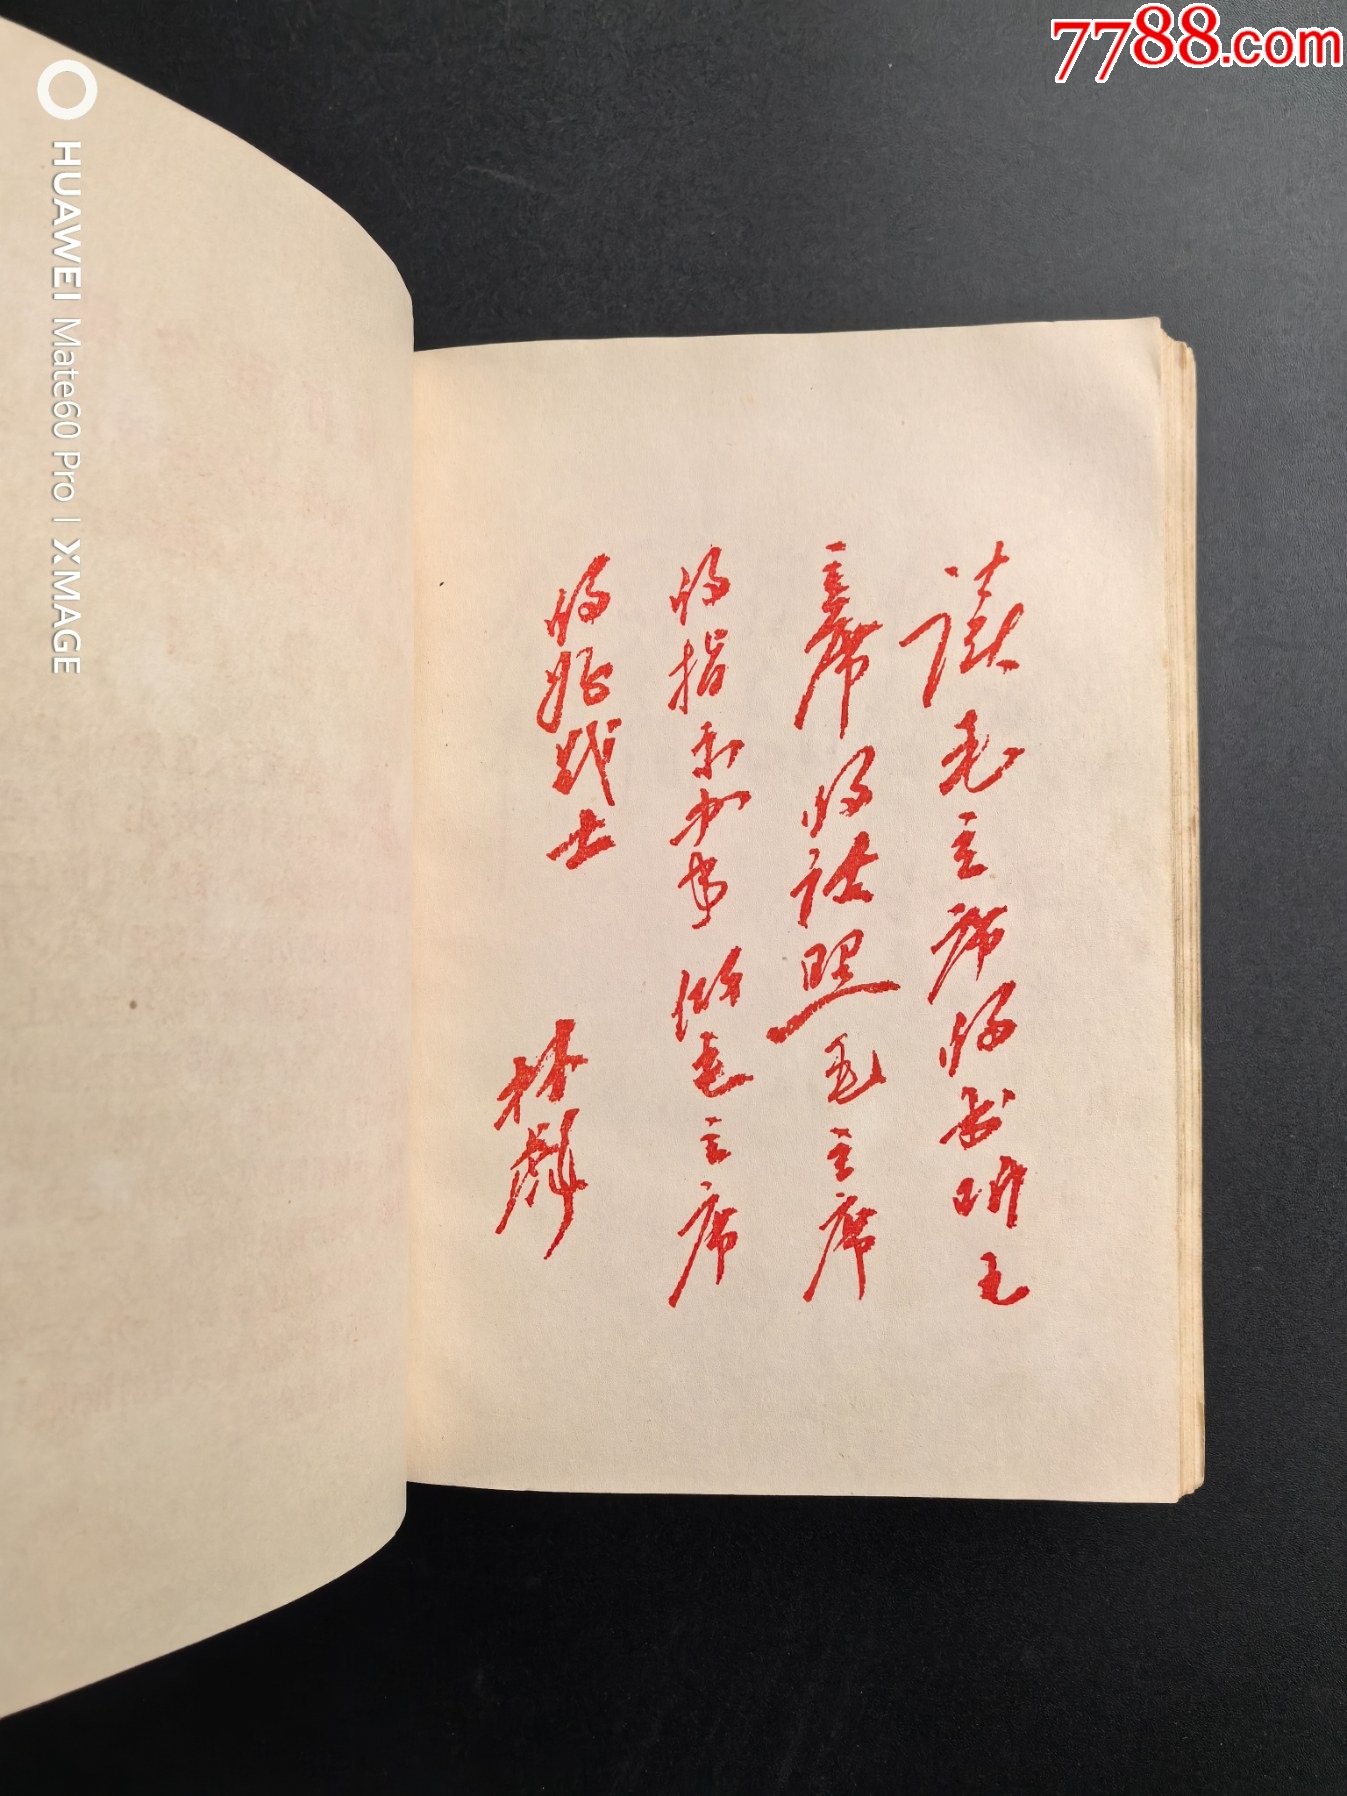 7788.com
HUAWEI Mate60 Pro | XMAGE
读毛主席的书听毛
主席的话照毛主席
的指示办事做毛主席
的好战士
林彪